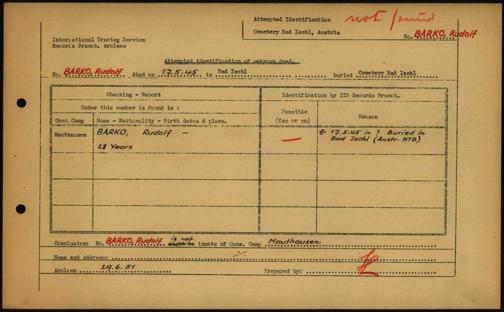 Attempted Identification
not found
Cemetery Bad Ischl, Austria
International Tracing Service
Records Branch, Arolsen
No. BARKO, Rudolf
Attempted identification of unknown dead.
No. BARKO, Rudolf died on 17.5.45 in Bad Ischl buried Cemetery Bad Ischl
Checking - Report
Identification by ITS Records Branch.
Under this number is found in :
Possible
(Yes or no)
Reason
Conc. Camp
Name - Nationality - Birth dates & place.
Mauthausen
BARKO, Rudolf -
28 Years
—
17.5.45 in ? Buried in
Bad Ischl (Austr. NTB)
Conclusion: No. BARKO, Rudolf is not might be inmate of Conc. Camp Mauthausen
Name and address:
Arolsen 29.6.51
Prepared by: